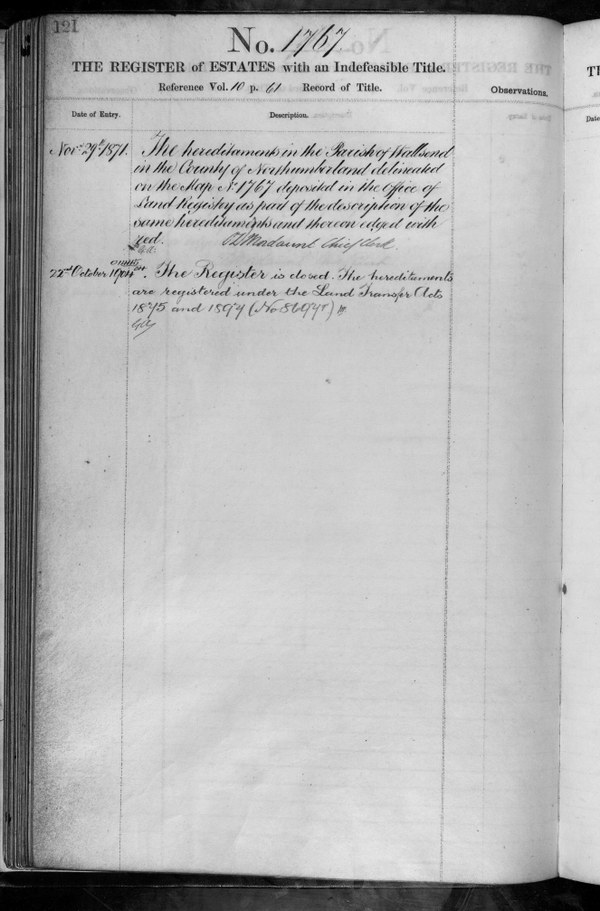 121
No. 1767
THE REGISTER of ESTATES with an Indefeasible Title.
Reference Vol. 10 p. 61 Record of Title.
Observations.
Date of Entry.
Description.
Novr. 29th 1871.
The hereditaments in the Parish of Wallsend
in the County of Northumberland delineated
on the Map No 1767 deposited in the Office of
Land Registry as part of the description of the
same hereditaments and thereon edged with
red. Chief Clerk
22nd October
The Register is closed. The hereditaments
are registered under the Land Transfer Acts
1875 and 1897
Date